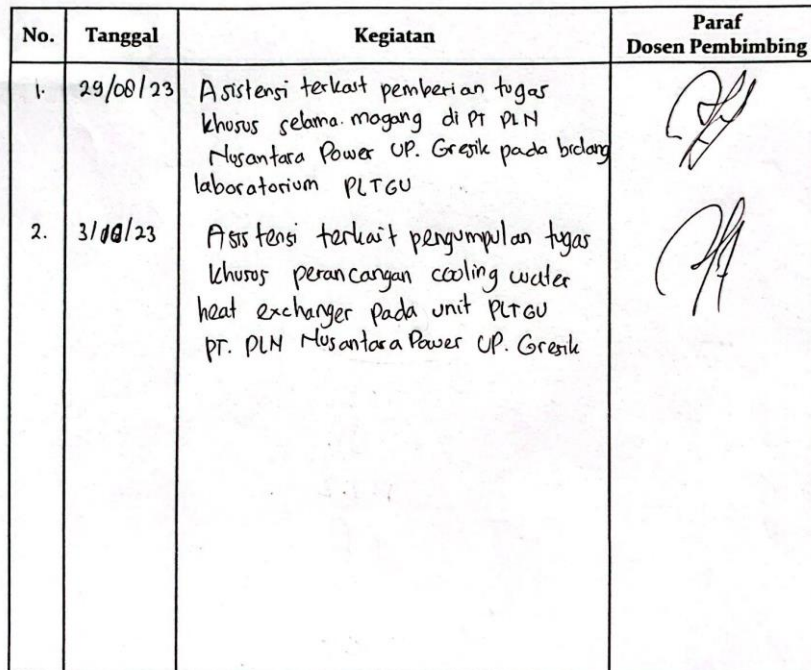 No. Tanggal Kegiatan Paraf
Dosen Pembimbing
1. 29/08/23 Asistensi terkait pemberian tugas
khusus selama magang di PT PLN
Nusantara Power UP. Gresik pada bidang
laboratorium PLTGU
2. Asistensi terkait pengumpulan tugas
khusus perancangan cooling water
heat exchanger pada unit PLTGU
PT. PLN Nusantara Power UP. Gresik